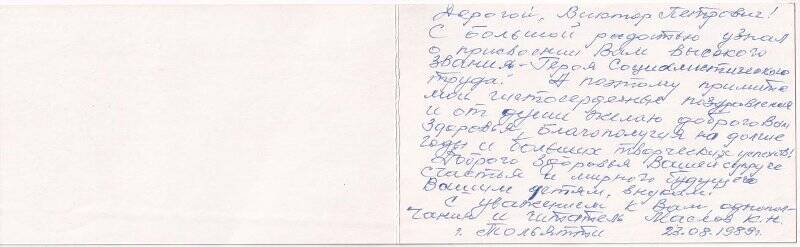 Дорогой, Виктор Петрович!
С большой радостью узнал
о присвоении Вам высокого
звания - Героя Социалистического
труда! А поэтому примите
мои чистосердечные поздравления
и от души желаю доброго Вам
здоровья, благополучия на долгие
годы и больших творческих успехов!
Доброго здоровья Вашей супруге
счастья и мирного будущего
Вашим детям, внукам!
С уважением к Вам, однопол-
чанин и читатель Маслов К.Н.
г. Тольятти 23.08.1989г.